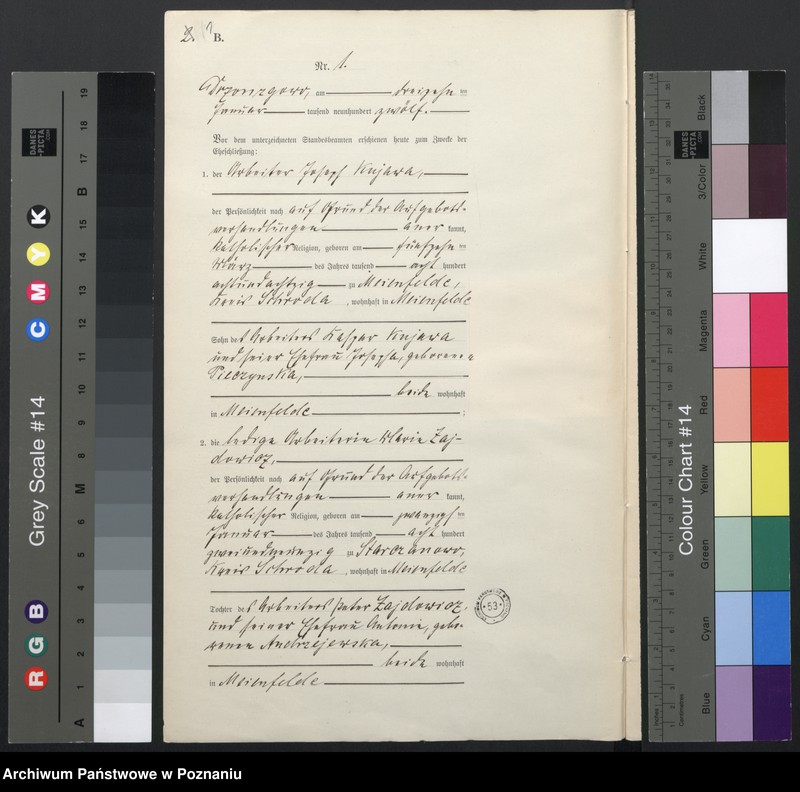 2. B.
Nr. 1.
am dreizehn ten
Januar tausend neunhundert zwölf.
Vor dem unterzeichneten Standesbeamten erschienen heute zum Zwecke der
Eheschließung:
1. der Arbeiter Joseph Kujawa,
der Persönlichkeit nach auf Grund der Aufgebots-
verhandlungen aner kannt,
katholischer Religion, geboren am fünfzehn ten
März des Jahres tausend acht hundert
achtundachtzig zu Meienfelde,
Kreis Schroda, wohnhaft in Meienfelde
Sohn des Arbeiters Kaspar Kujawa
und seiner Ehefrau Josepha, geborenen
beide wohnhaft
in Meienfelde ;
2. die ledige Arbeiterin Maria Zaj-
dowicz,
der Persönlichkeit nach auf Grund der Aufgebots-
verhandlungen aner kannt,
katholischer Religion, geboren am zwanzigsten
Januar des Jahres tausend acht hundert
zweiundneunzig zu Starczanowo,
Kreis Schroda, wohnhaft in Meienfelde
Tochter des Arbeiters Peter Zajdowicz,
und seiner Ehefrau Antonie, gebo-
renen Andrzejewska,
beide wohnhaft
in Meienfelde
53
Grey Scale #14
DANES
-PICTA
.COM
A 1 2 3 4 5 6 M 8 9 10 11 12 13 14 15 B 17 18 19
R G B
C M Y K
Colour Chart #14
DANES
-PICTA
.COM
Blue Cyan Green Yellow Red Magenta White 3/Color Black
Inches
Centimetres
Archiwum Państwowe w Poznaniu